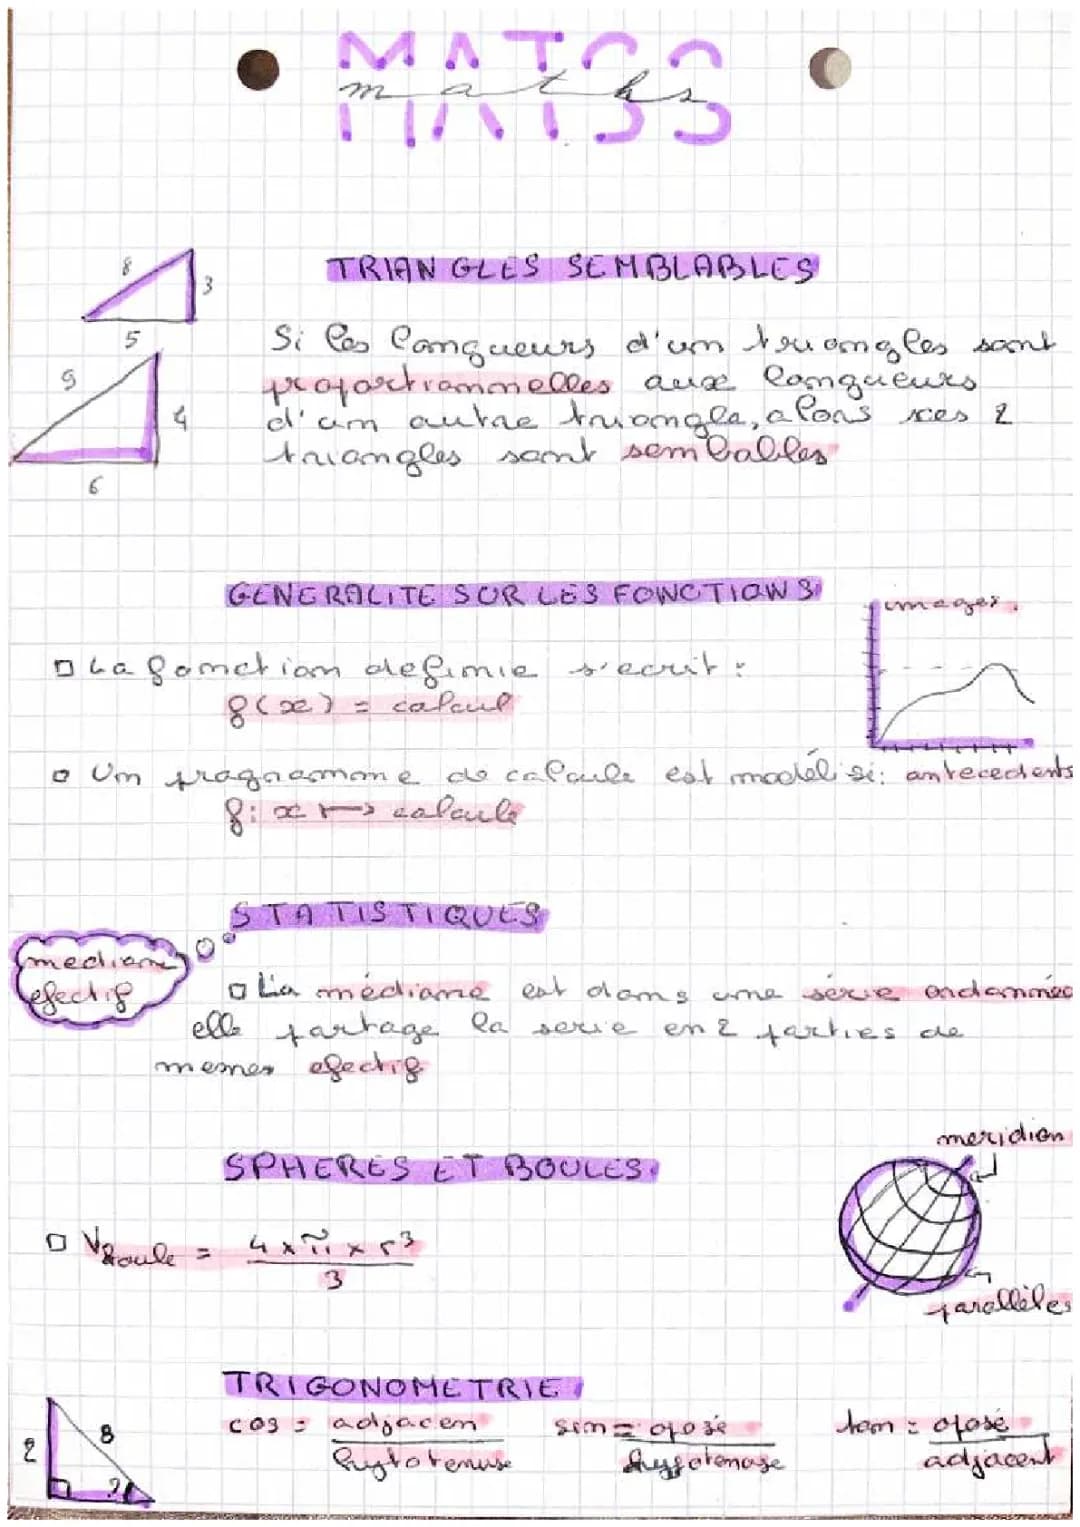 maths
8
3
5
TRIANGLES SEMBLABLES
Si les longueurs d'un triangles sont
9
proportionnelles aux longueurs
4
d'un autre triangle, alors ces 2
triangles sont sembables
6
GENERALITE SUR LES FONCTIONS
images.
□ La fonction definie s'ecrit :
f(x) = calcul
□ Um programme de calcule est modélisé:
antecedents
f: x ↦ calcule
STATISTIQUES
mediane
efectif
□ La médiane est dans une série ordonnée
elle partage la serie en 2 parties de
memes efectif
meridien
SPHERES ET BOULES
□ Vboule = 4 x π x r³
3
parallèles
TRIGONOMETRIE
cos = adjacen
hytotenuse
sin = oposé
hypotenuse
tan = oposé
adjacent
2
8
?